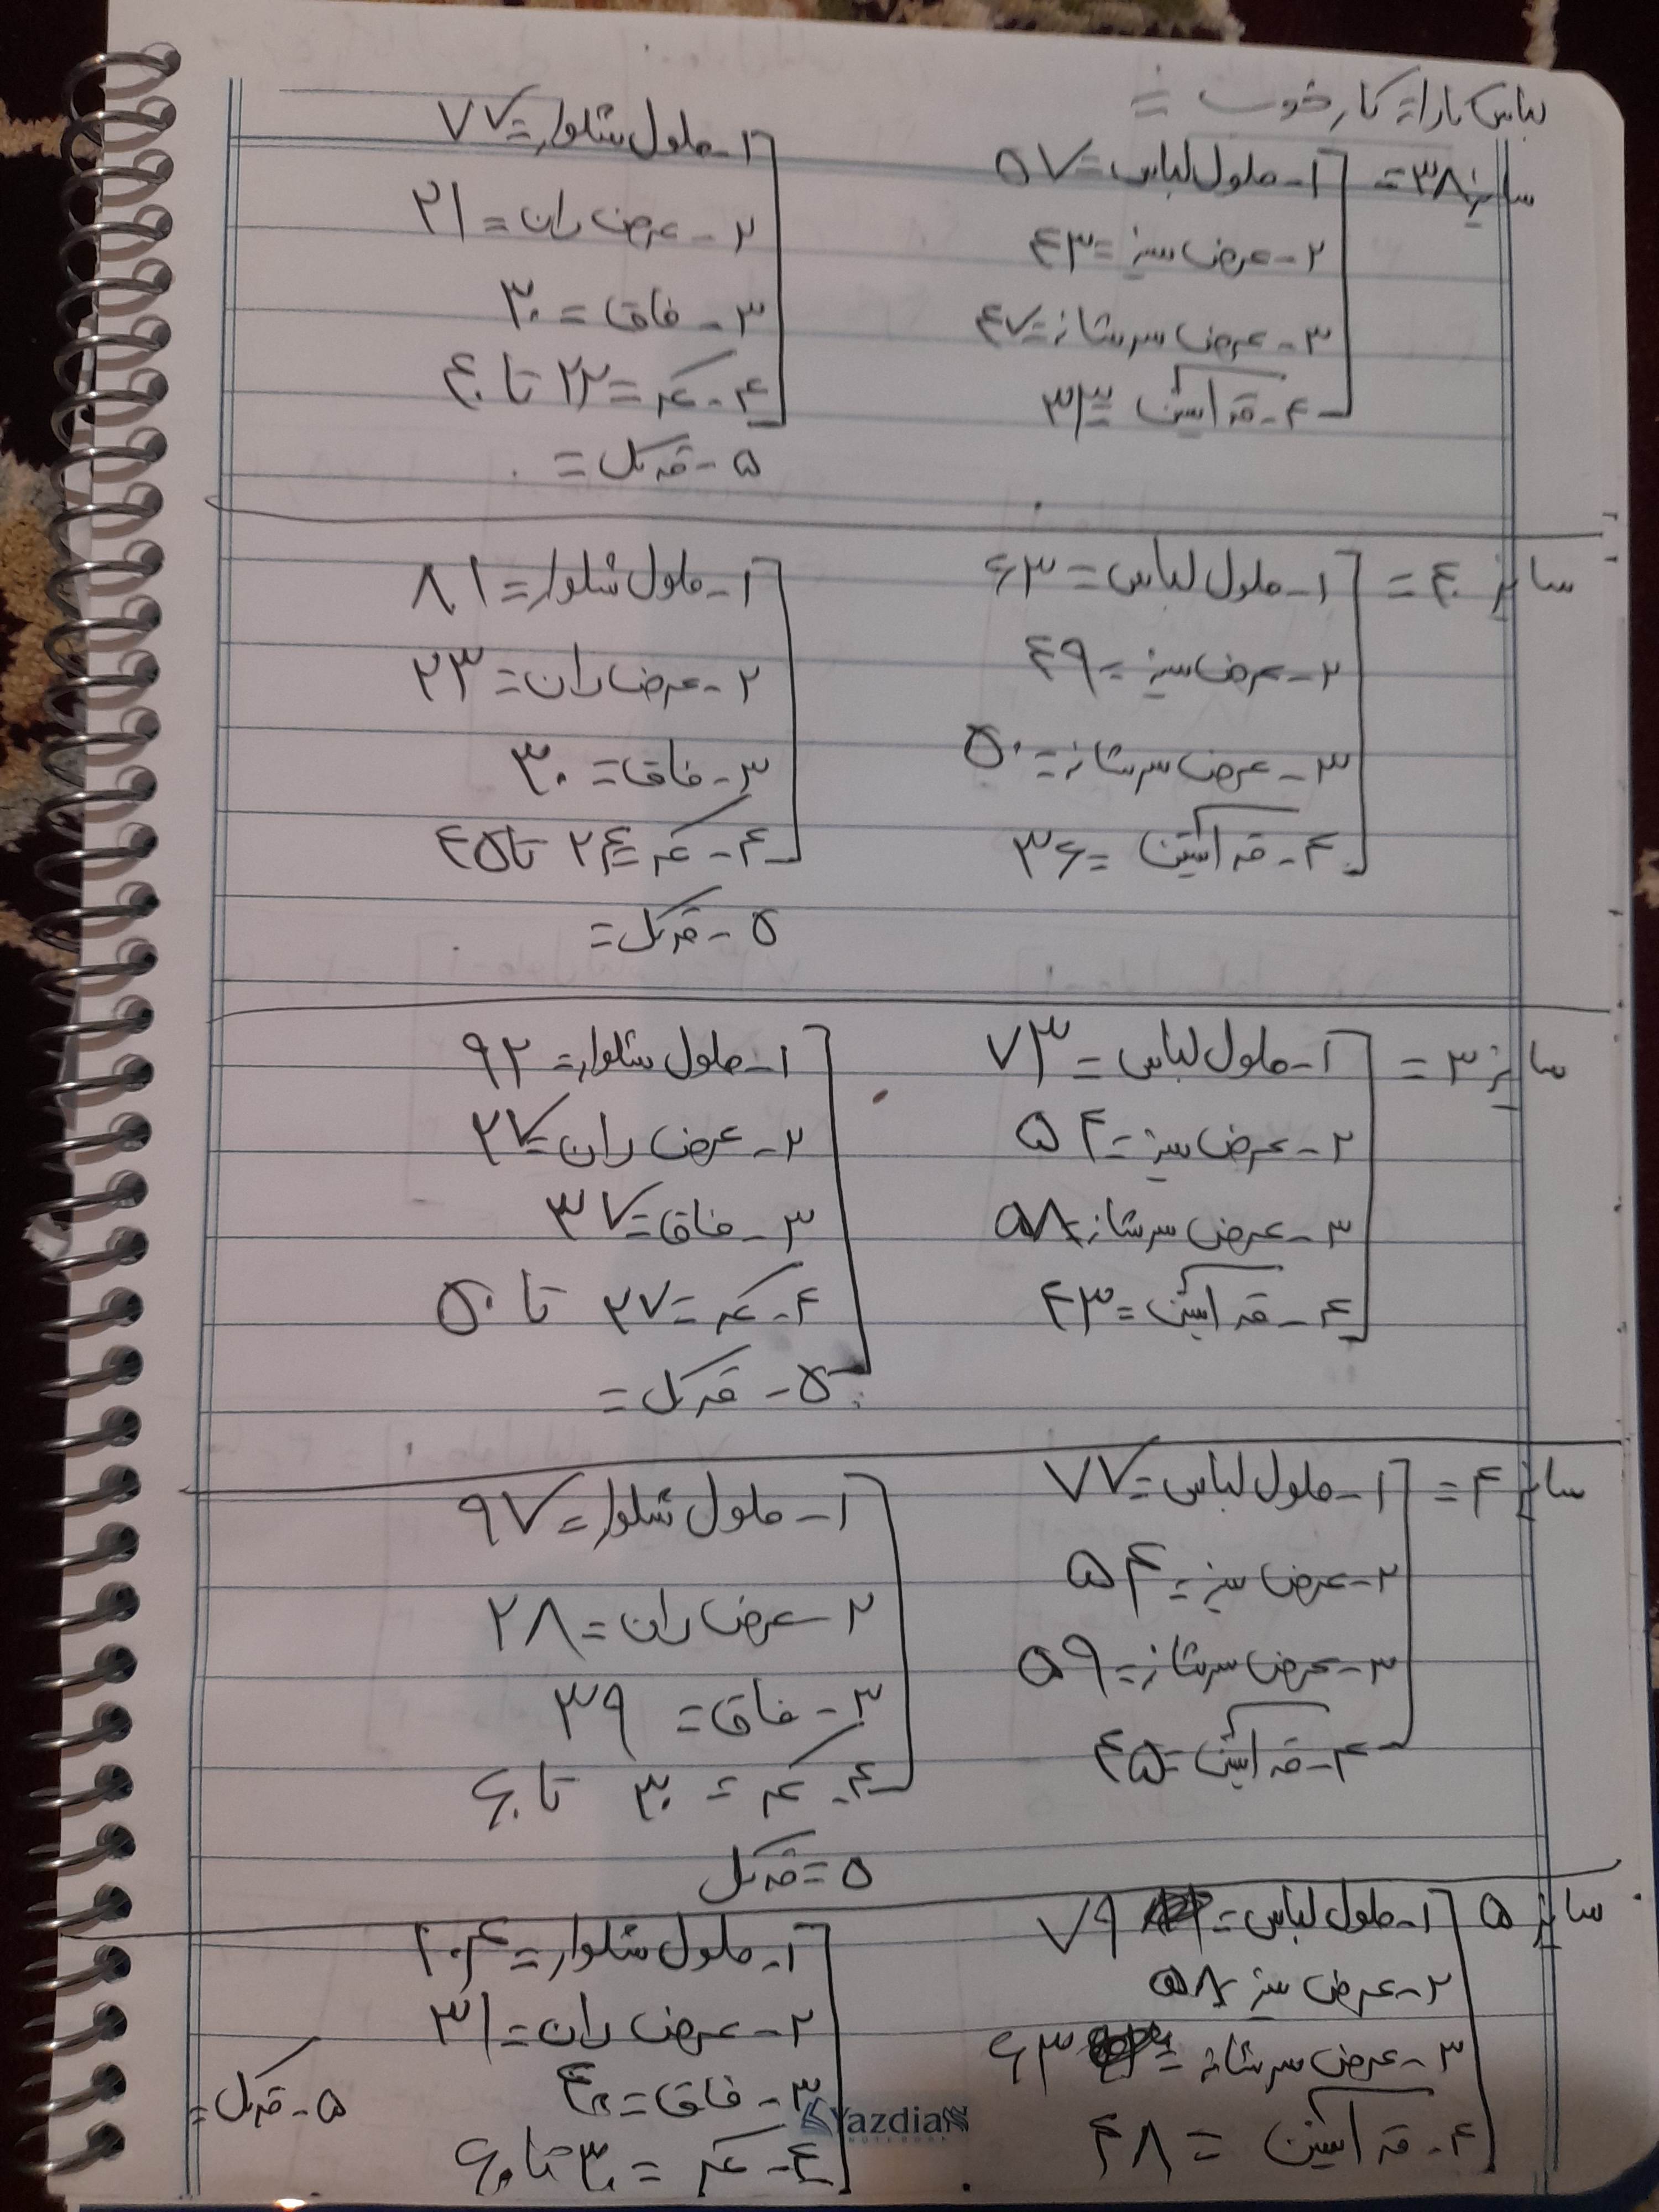 لباس کاراته کار خوب =
سایز ۳۸ =
۱- طول لباس = ۵۷
۲- عرض سینه = ۴۳
۳- عرض سرشانه = ۴۷
۴- قد آستین = ۳۳
۱- طول شلوار = ۷۷
۲- عرض ران = ۲۱
۳- فاق = ۳۰
۴- کمر = ۲۲ تا ۴۰
۵- قد کل =
سایز ۴۰ =
۱- طول لباس = ۶۳
۲- عرض سینه = ۴۹
۳- عرض سرشانه = ۵۰
۴- قد آستین = ۳۶
۱- طول شلوار = ۸۱
۲- عرض ران = ۲۳
۳- فاق = ۳۰
۴- کمر = ۲۴ تا ۴۵
۵- قد کل =
سایز ۳ =
۱- طول لباس = ۷۳
۲- عرض سینه = ۵۴
۳- عرض سرشانه = ۵۸
۴- قد آستین = ۴۳
۱- طول شلوار = ۹۲
۲- عرض ران = ۲۷
۳- فاق = ۳۷
۴- کمر = ۲۷ تا ۵۰
۵- قد کل =
سایز ۴ =
۱- طول لباس = ۷۷
۲- عرض سینه = ۵۴
۳- عرض سرشانه = ۵۹
۴- قد آستین = ۴۵
۱- طول شلوار = ۹۷
۲- عرض ران = ۲۸
۳- فاق = ۳۹
۴- کمر = ۳۰ تا ۶۰
۵= قد کل
سایز ۵
۱- طول لباس = ۷۹
۲- عرض سینه ۵۸
۳- عرض سرشانه = ۶۳
۴- قد آستین = ۴۸
۱- طول شلوار = ۱۰۴
۲- عرض ران = ۳۱
۳- فاق = ۴۰
۴- کمر = ۳۰ تا ۶۰
۵- قد کل =
Yazdian
NOTEBOOK